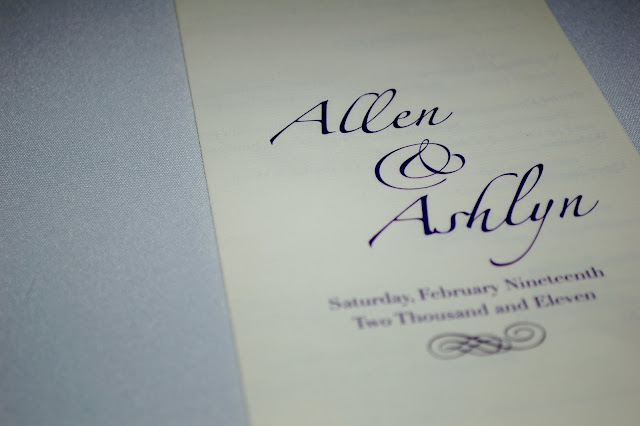 Allen
&
Ashlyn
Saturday, February Nineteenth
Two Thousand and Eleven